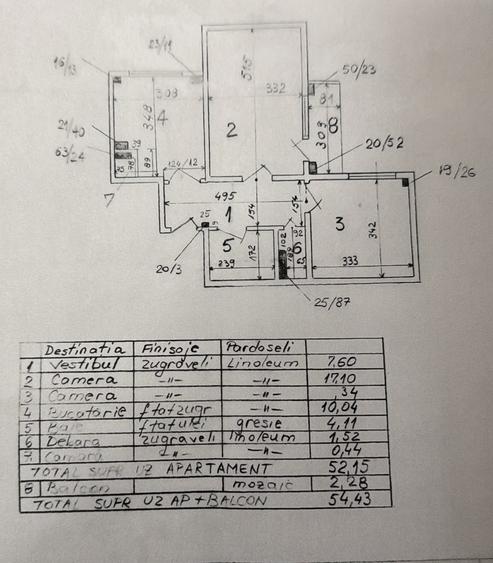 23/11
16/13
308
348
4
515
332
2
50/23
81
309
8
21/40
63/24
78
89
7
124/12
20/52
19/26
495
154
154
1
3
342
333
25
5
172
239
102
6
20/3
25/87
Destinatia Finisaje Pardoseli
1 Vestibul zugraveli Linoleum 7,60
2 Camera -"- -"- 17,10
3 Camera -"- -"- ,34
4 Bucatarie -"- 10,04
5 Baie gresie 4,11
6 Debara zugraveli linoleum 1,52
7 Camara -"- -"- 0,44
TOTAL SUPR UZ APARTAMENT 52,15
8 Balcon mozaic 2,28
TOTAL SUPR UZ AP+BALCON 54,43